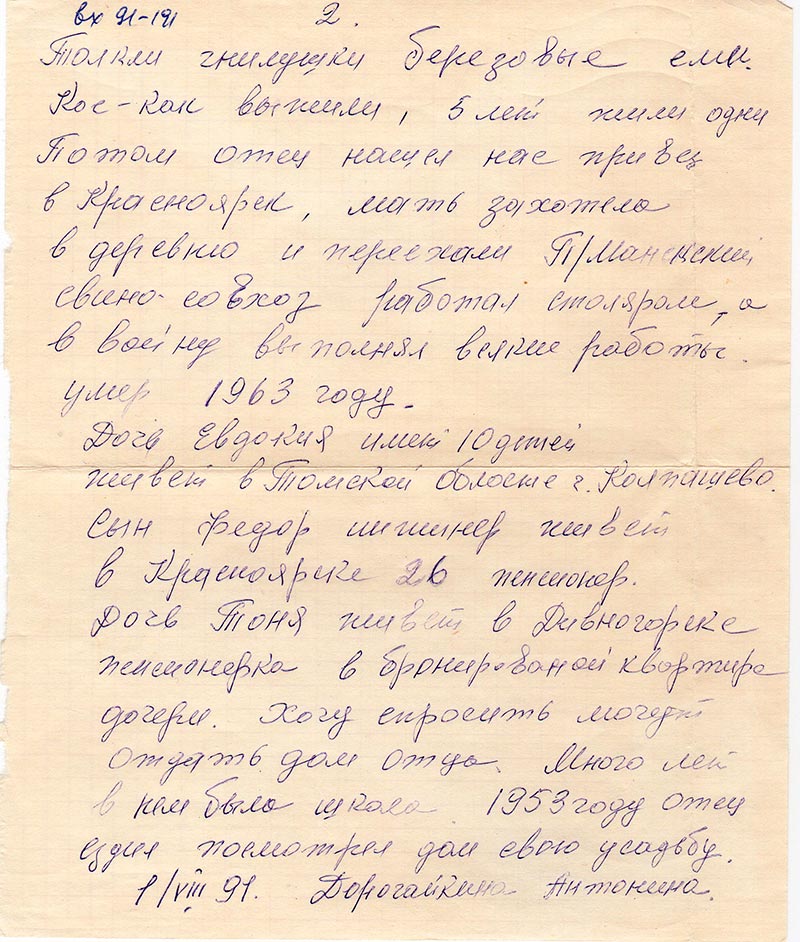 вх 91-191
2.
Толкли гнилушки березовые ели.
Кое-как выжили, 5 лет жили одни
Потом отец нашел нас привез
в Красноярск, мать захотела
в деревню и переехали П/Манский
свино-совхоз работал столяром, а
в войну выполнял всякие работы.
умер 1963 году.
Дочь Евдокия имеет 10 детей
живет в Томской области г. Колпашево.
Сын Федор инжинер живет
в Красноярске 26 пенсионер.
Дочь Тоня живет в Дивногорске
пенсионерка в бронированой квартире
дочери. Хочу спросить могут
отдать дом отца. Много лет
в нем была школа 1953 году отец
ездил посмотрел дом свою усадьбу.
1/VIII 91. Дорогайкина Антонина.